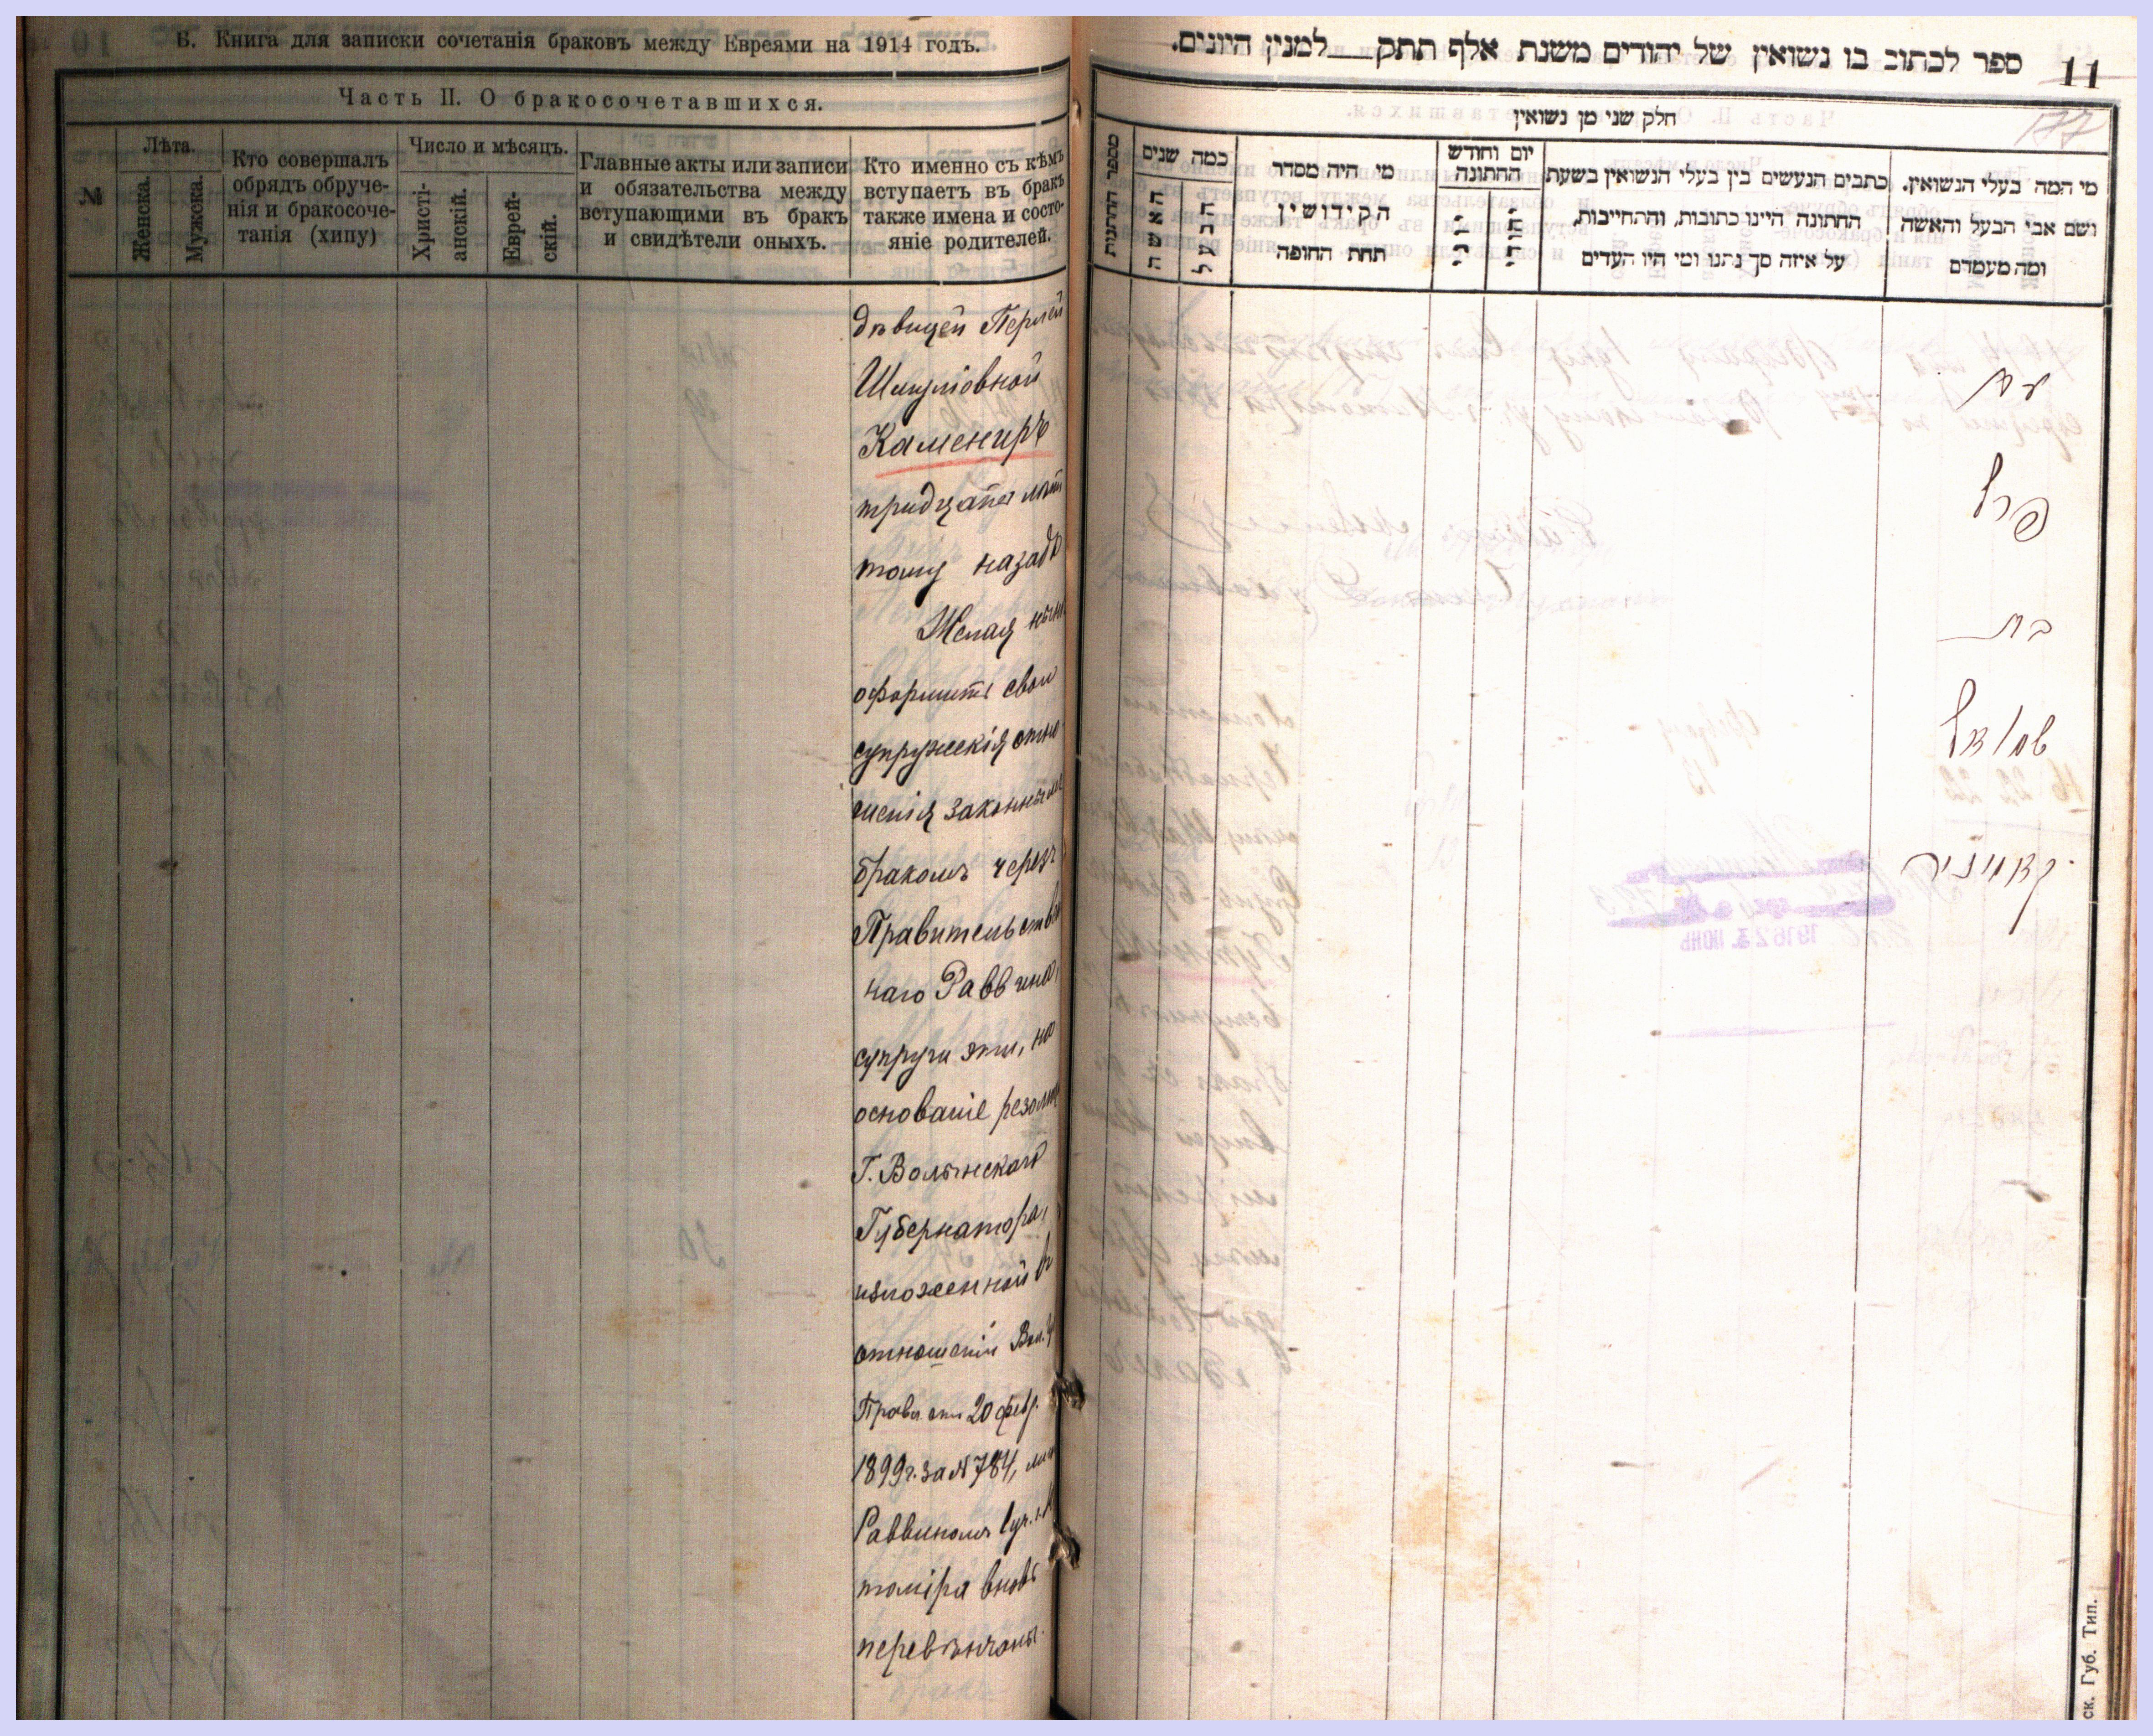 Б. Книга для записки сочетанія браковъ между Евреями на 1914 годъ.
Часть II. О бракосочетавшихся.
№
Лѣта.
Женска.
Мужска.
Кто совершалъ
обрядъ обруче-
нія и бракосоче-
танія (хипу)
Число и мѣсяцъ.
Христі-
анскій.
Еврей-
скій.
Главные акты или записи
и обязательства между
вступающими въ бракъ
и свидѣтели оныхъ.
Кто именно съ кѣмъ
вступаетъ въ бракъ
также имена и состо-
яніе родителей.
дѣвицей Перлей
Шмуліовной
Камениръ
тридцать лѣтъ
тому назадъ
Желая нынѣ
оформить свои
супружескія отно-
шенія законнымъ
бракомъ черезъ
Правительствен
наго Раввина,
супруги эти, на
основаніе резолюц
Г. Волынскаго
Губернатора,
изложенной въ
отношеніи Вол. Г
Правл отъ 20 февр.
1899г. за №784,
Раввиномъ гор.
томіра вновь
перевѣнчаны.
ספר לכתוב בו נשואין של יהודים משנת אלף תתק למנין היונים.
11
177
חלק שני מן נשואין
מספר החתונות
כמה שנים
האשה
הבעל
מי היה מסדר
הקידושין
תחת החופה
יום וחודש
החתונה
כתבים הנעשים בין בעלי הנשואין בשעת
החתונה היינו כתובות, והתחייבות,
על איזה סך נתנו ומי היו העדים
מי המה בעלי הנשואין.
ושם אבי הבעל והאשה
ומה מעמדם
עם
פרל
בת
שמואל
קאמיניר
ск. Губ. Тип.